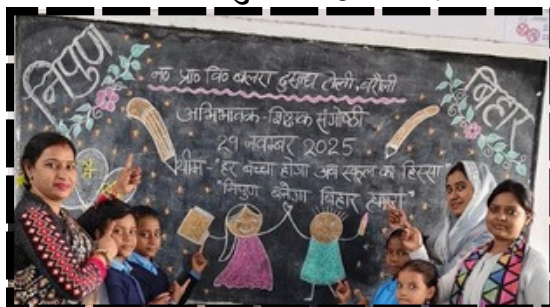 निपुण
बिहार
न० प्रा० वि० बलरा दुसाध टोली, बरौली
अभिभावक-शिक्षक संगोष्ठी
29 नवम्बर 2025
थीम - "हर बच्चा होगा अब स्कूल का हिस्सा"
"निपुण बनेगा बिहार हमारा"